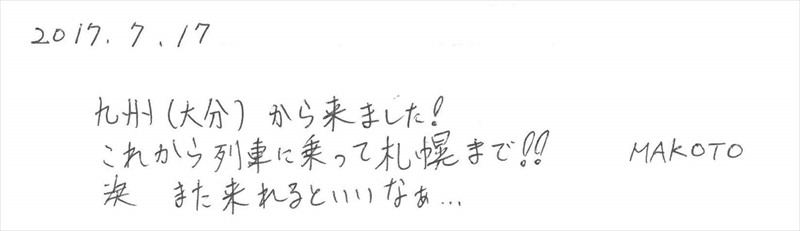 2017.7.17
九州(大分)から来ました!
これから列車に乗って札幌まで!! MAKOTO
また来れるといいなぁ…